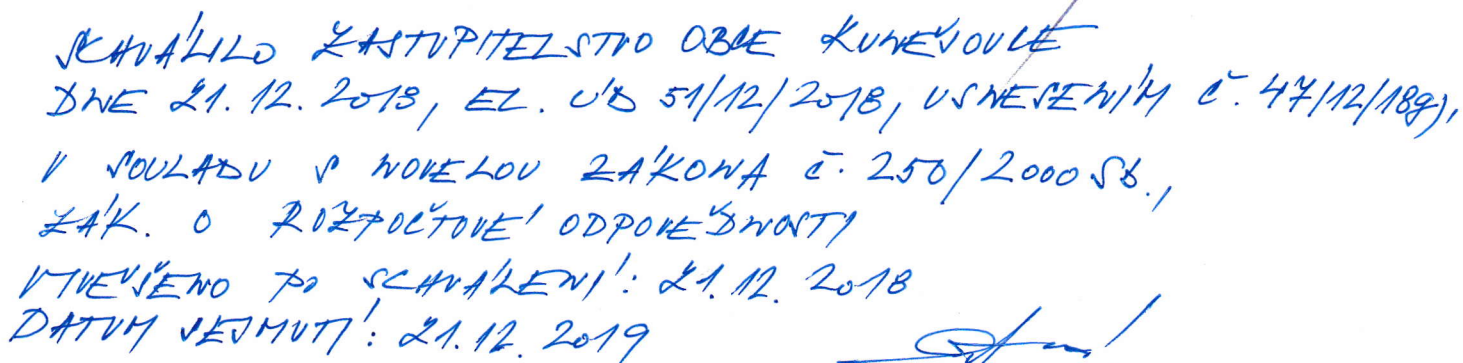 SCHVÁLILO ZASTUPITELSTVO OBCE KUNĚJOVICE
DNE 21. 12. 2018, EL. ÚD 51/12/2018, USNESENÍM č. 47/12/18g),
V SOULADU S NOVELOU ZÁKONA č. 250/2000 Sb.,
ZÁK. O ROZPOČTOVÉ ODPOVĚDNOSTI
VYVĚŠENO PO SCHVÁLENÍ: 21. 12. 2018
DATUM SEJMUTÍ: 21. 12. 2019